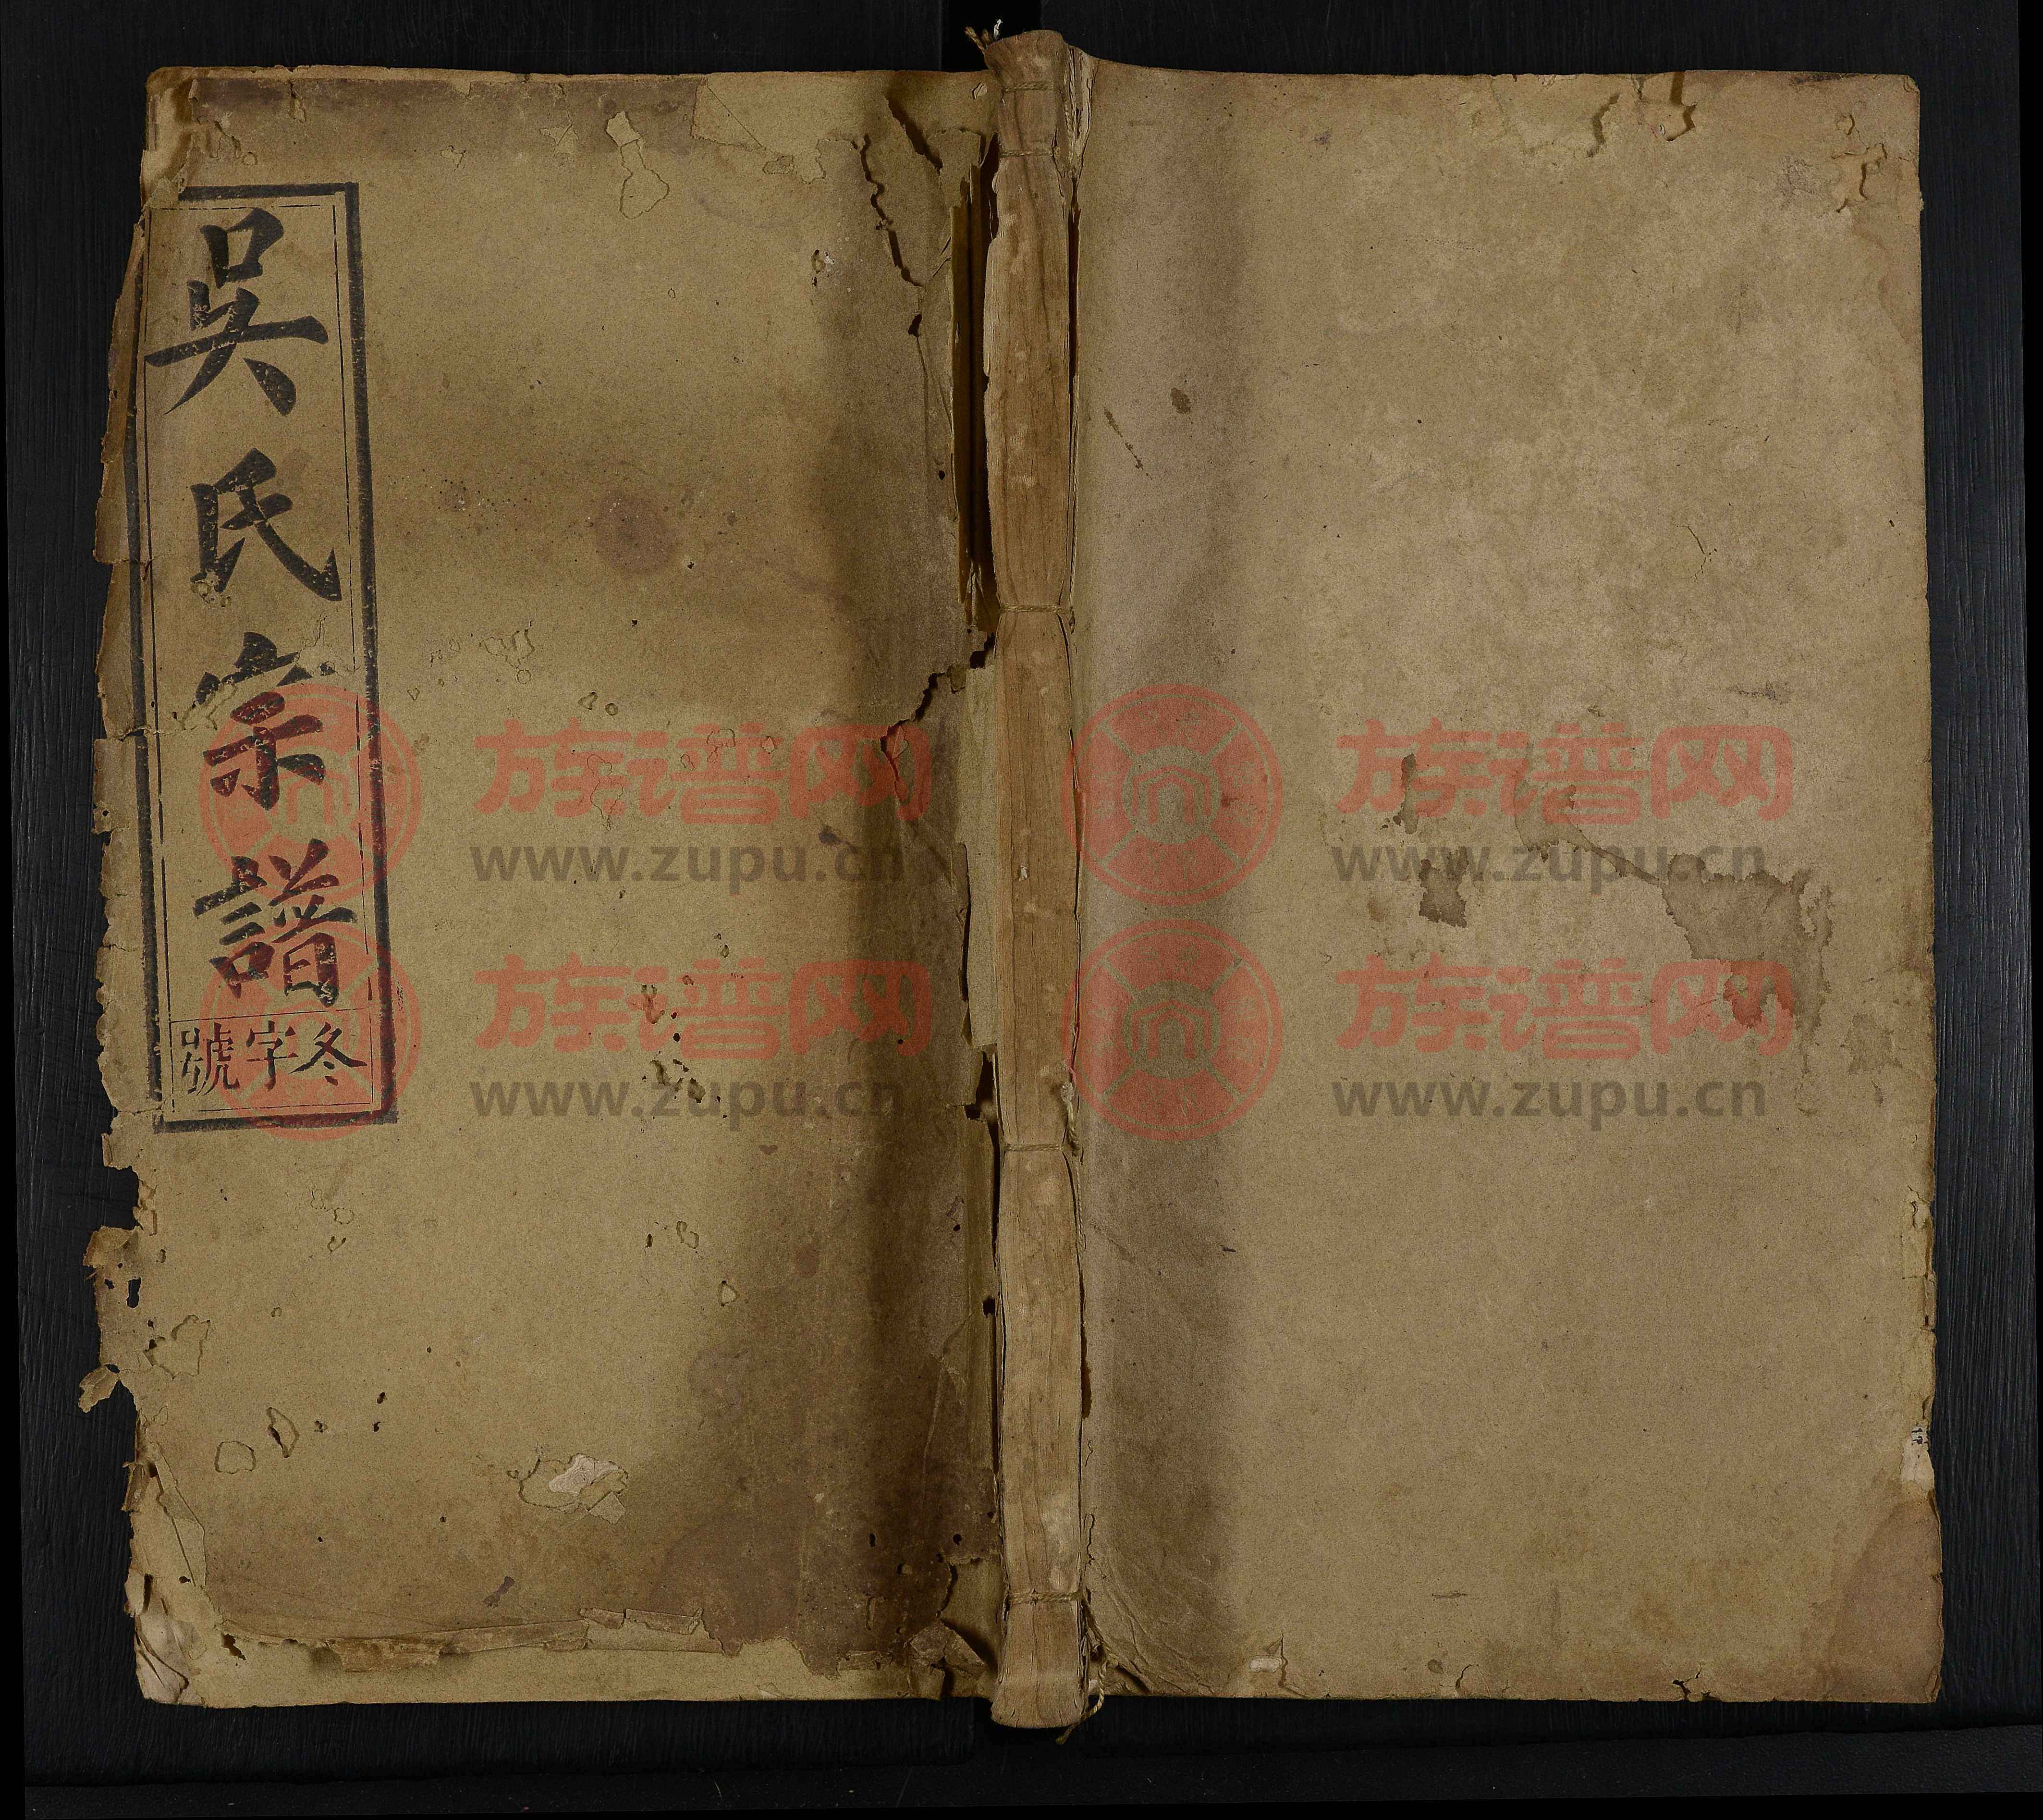 吳氏宗譜
冬字號
族谱网
www.zupu.cn
族谱网
www.zupu.cn
族谱网
www.zupu.cn
族谱网
www.zupu.cn